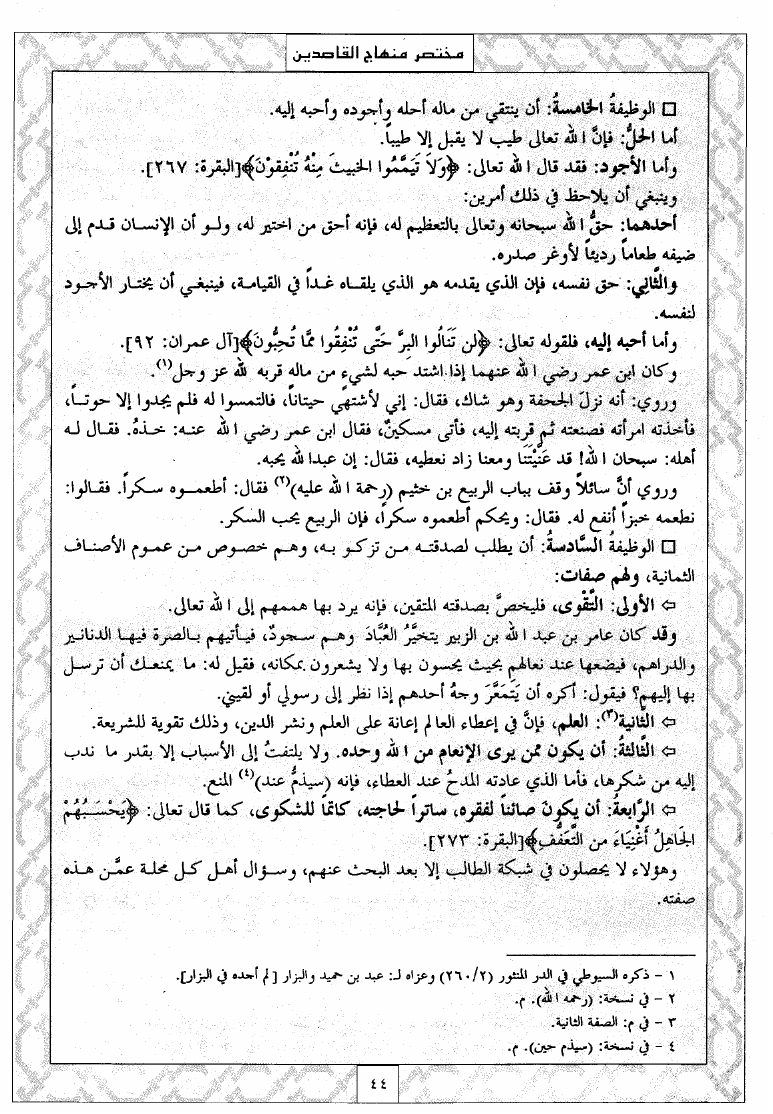 مختصر منهاج القاصدين
□ الوظيفةُ الخامسةُ: أن ينتقي من ماله أحله وأجوده وأحبه إليه.
أما الحلُّ: فإنَّ الله تعالى طيب لا يقبل إلا طيباً.
وأما الأجود: فقد قال الله تعالى: ﴿وَلاَ تَيَمَّمُوا الخبيثَ مِنْهُ تُنْفِقوْنَ﴾[البقرة: ٢٦٧].
وينبغي أن يلاحظ في ذلك أمرين:
أحدهما: حقُّ الله سبحانه وتعالى بالتعظيم له، فإنه أحق من اختير له، ولو أن الإنسان قدم إلى
ضيفه طعاماً رديئاً لأوغر صدره.
والثَّانِي: حق نفسه، فإن الذي يقدمه هو الذي يلقاه غداً في القيامة، فينبغي أن يختار الأجود
لنفسه.
وأما أحبه إليه، فلقوله تعالى: ﴿لن تَنَالُوا البِرَّ حَتَّى تُنْفِقُوا ممَّا تُحِبُّونَ﴾[آل عمران: ٩٢].
وكان ابن عمر رضي الله عنهما إذا اشتد حبه لشيءٍ من ماله قربه لله عز وجل(١).
وروي: أنه نزلَ الجحفة وهو شاك، فقال: إني لأشتهي حيتاناً، فالتمسوا له فلم يجدوا إلا حوتاً،
فأخذته امرأته فصنعته ثم قربته إليه، فأتى مسكينٌ، فقال ابن عمر رضي الله عنه: خذهُ. فقال له
أهله: سبحان الله! قد عَنَّيْتَنَا ومعنا زاد نعطيه، فقال: إن عبدالله يحبه.
وروي أنَّ سائلاً وقف بباب الربيع بن خثيم (رحمة الله عليه)(٢) فقال: أطعموه سكراً. فقالوا:
نطعمه خبزاً أنفع له. فقال: ويحكم أطعموه سكراً، فإن الربيع يحب السكر.
□ الوظيفةُ السَّادسةُ: أن يطلب لصدقته من تزكو به، وهم خصوص من عموم الأصناف
الثمانية، ولهم صفات:
⇦ الأولى: التَّقْوى، فليخصَّ بصدقته المتقين، فإنه يرد بها هممهم إلى الله تعالى.
وقد كان عامر بن عبد الله بن الزبير يتخيَّرُ العُبَّادَ وهم سجودٌ، فيأتيهم بالصرة فيها الدنانير
والدراهم، فيضعها عند نعالهم بحيث يحسون بها ولا يشعرون بمكانه، فقيل له: ما يمنعك أن ترسل
بها إليهم؟ فيقول: أكره أن يَتَمَعَّرَ وجهُ أحدهم إذا نظر إلى رسولي أو لقيني.
⇦ الثَّانية(٣): العلم، فإنَّ في إعطاء العالم إعانة على العلم ونشر الدين، وذلك تقوية للشريعة.
⇦ الثَّالثةُ: أن يكون ممن يرى الإنعام من الله وحده. ولا يلتفتُ إلى الأسباب إلا بقدر ما ندب
إليه من شكرها، فأما الذي عادته المدحُ عند العطاء، فإنه (سيذمُّ عند)(٤) المنع.
⇦ الرَّابعةُ: أن يكونَ صائناً لفقره، ساتراً لحاجته، كاتماً للشكوى، كما قال تعالى: ﴿يَحْسَبُهُمْ
الجَاهِلُ أَغْنِيَاءَ من التَّعَفُّفِ﴾[البقرة: ٢٧٣].
وهؤلاء لا يحصلون في شبكة الطالب إلا بعد البحث عنهم، وسؤال أهل كل محلة عمَّن هذه
صفته.
١ - ذكره السيوطي في الدر المنثور (٢/٢٦٠) وعزاه لـ: عبد بن حميد والبزار [لم أجده في البزار].
٢ - في نسخة: (رحمه الله). م.
٣ - في م: الصفة الثانية.
٤ - في نسخة: (سيذم حين). م.
٤٤